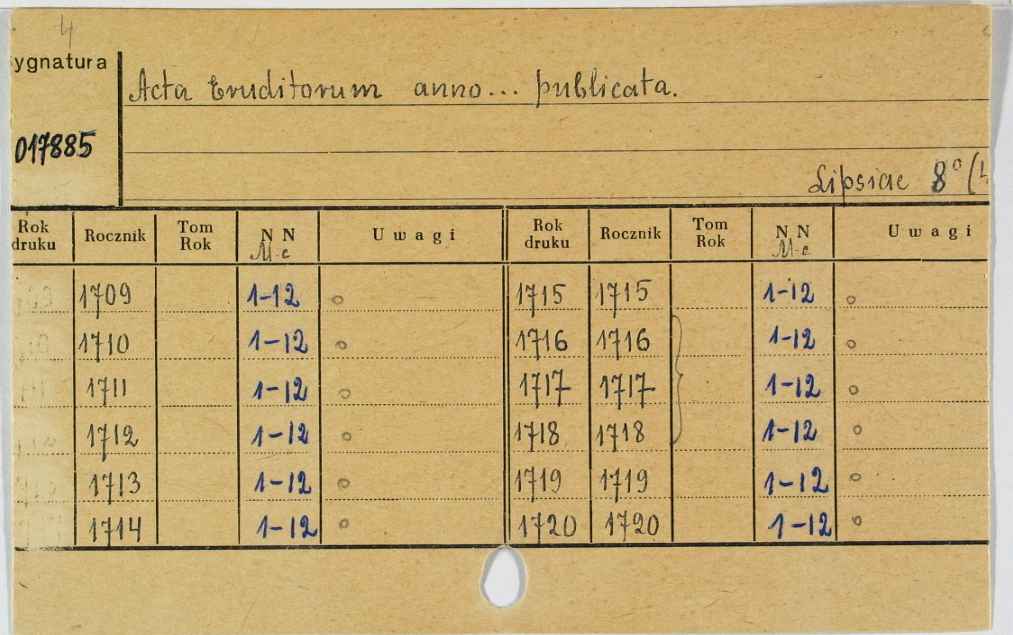 4
ygnatura
Acta Eruditorum anno... publicata.
017885
Lipsiae 8° (4
Rok druku Rocznik Tom Rok NN M-c Uwagi Rok druku Rocznik Tom Rok NN M-c Uwagi
1709 1-12 o 1715 1715 1-12 o
1710 1-12 o 1716 1716 1-12 o
1711 1-12 o 1717 1717 1-12 o
1712 1-12 o 1718 1718 1-12 o
1713 1-12 o 1719 1719 1-12 o
1714 1-12 o 1720 1720 1-12 o